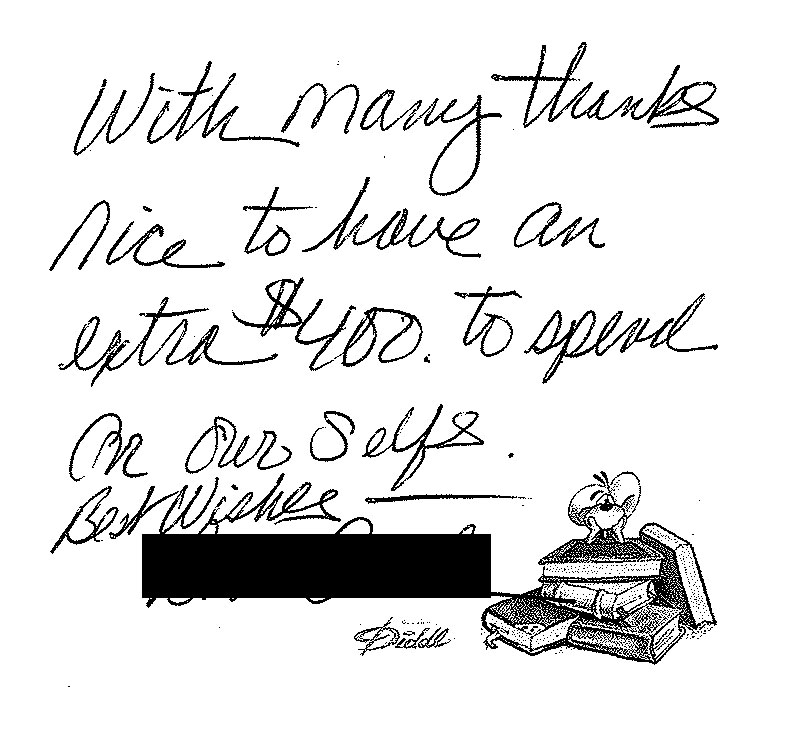 With many thanks
nice to have an
extra $400. to spend
on our selfs.
Best Wishes
Diddl